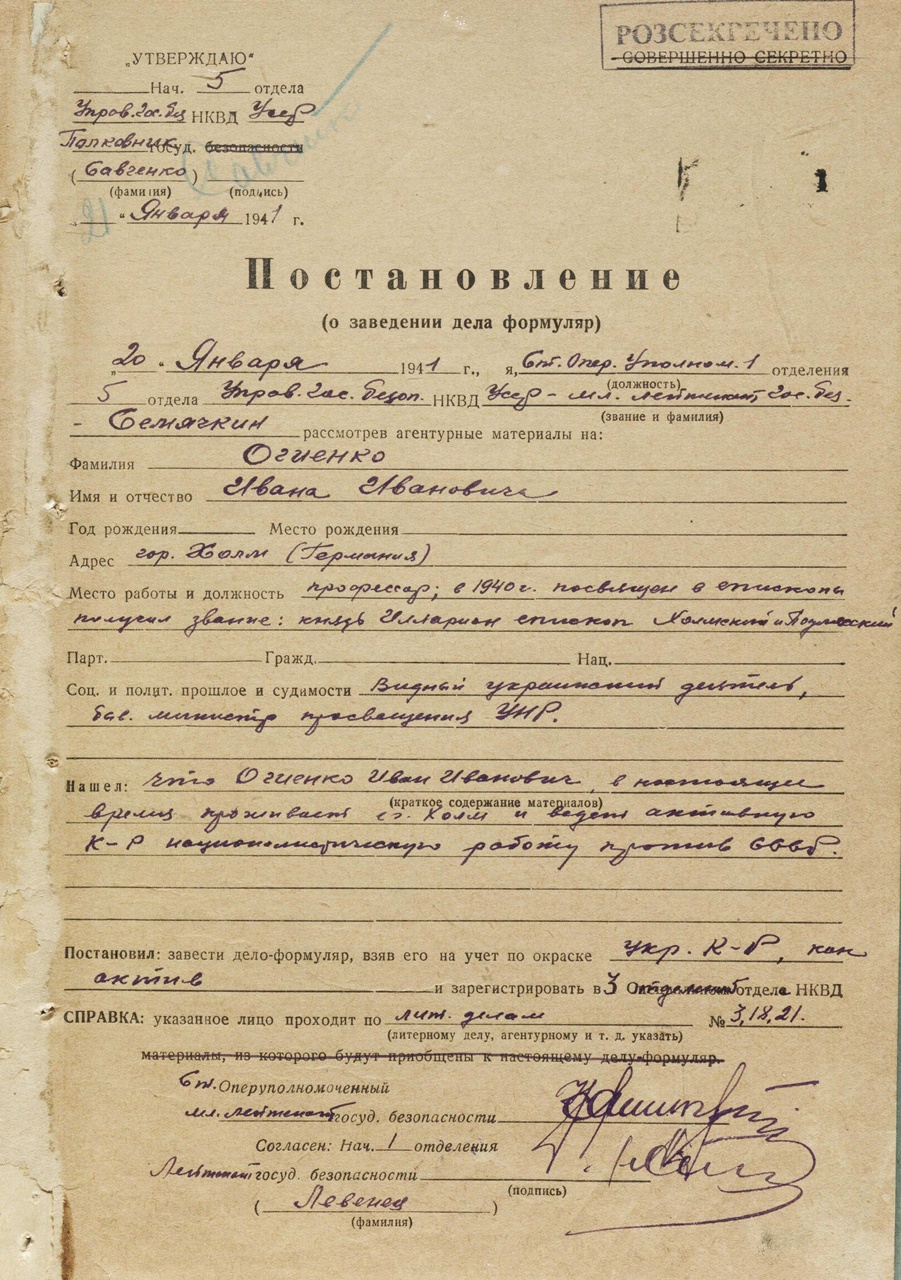 РОЗСЕКРЕЧЕНО
СОВЕРШЕННО СЕКРЕТНО
„УТВЕРЖДАЮ“
Нач. 5 отдела
Упров. Гос. без НКВД УССР
Полковник госуд. безопасности
(Савченко)
(фамилия) (подпись)
21 „ “ Января 1941 г.
1
Постановление
(о заведении дела формуляр)
„20 “ Января 1941 г., я, Ст. Опер. Уполном. 1 отделения
(должность)
5 отдела Упров. Гос. безоп. НКВД УССР – мл. лейтенант Гос. без.
(звание и фамилия)
- Семячкин рассмотрев агентурные материалы на:
Фамилия Огиенко
Имя и отчество Ивана Ивановича
Год рождения Место рождения
Адрес гор. Холм (Германия)
Место работы и должность профессор; в 1940 г. посвящен в епископы
получил звание: князь Илларион епископ Холмский и Подляский
Парт. Гражд. Нац.
Соц. и полит. прошлое и судимости Видный украинский деятель,
быв. министр просвещения УНР.
Нашел: что Огиенко Иван Иванович, в настоящее
(краткое содержание материалов)
время проживает в г. Холм и ведет активную
К-Р националистическую работу против СССР.
Постановил: завести дело-формуляр, взяв его на учет по окраске укр. К-Р, кон
актив и зарегистрировать в 3 отдела НКВД
СПРАВКА: указанное лицо проходит по лит. делам № 3,18,21.
(литерному делу, агентурному и т. д. указать)
материалы, из которого будут приобщены к настоящему делу-формуляр.
Ст. Оперуполномоченный
мл. лейтенант госуд. безопасности
Согласен: Нач. 1 отделения
Лейтенант госуд. безопасности
(подпись)
( Левенец )
(фамилия)